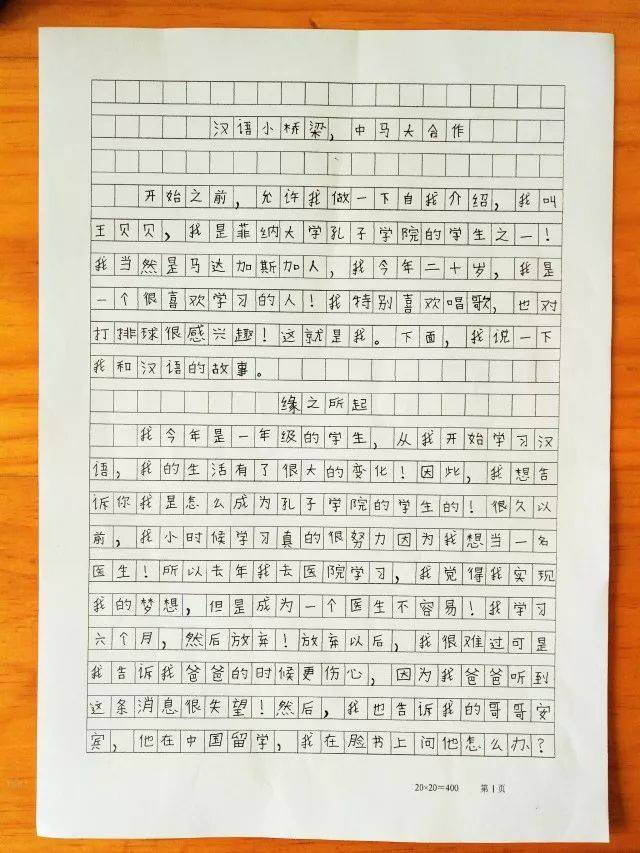 汉语小桥梁，中马大合作
开始之前，允许我做一下自我介绍，我叫
王贝贝，我是菲纳大学孔子学院的学生之一！
我当然是马达加斯加人，我今年二十岁，我是
一个很喜欢学习的人！我特别喜欢唱歌，也对
打排球很感兴趣！这就是我。下面，我说一下
我和汉语的故事。
缘之所起
我今年是一年级的学生，从我开始学习汉
语，我的生活有了很大的变化！因此，我想告
诉你我是怎么成为孔子学院的学生的！很久以
前，我小时候学习真的很努力因为我想当一名
医生！所以去年我去医院学习，我觉得我实现
我的梦想，但是成为一个医生不容易！我学习
六个月，然后放弃！放弃以后，我很难过可是
我告诉我爸爸的时候更伤心，因为我爸爸听到
这条消息很失望！然后，我也告诉我的哥哥安
宾，他在中国留学，我在脸书上问他怎么办？
20×20=400 第1页